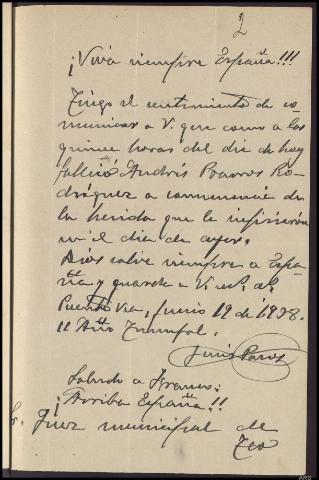 2
¡Viva siempre España!!!
Tengo el sentimiento de co-
municar a V. que como a las
quince horas del dia de hoy
falleció Andrés Barros Ro-
dríguez a consecuencia de
la herida que le infirieron
en el dia de ayer.
Dios salve siempre a Espa-
ña y guarde a V. m. a.
Puente Vea, Junio 19 de 1938.
II Año Triunfal.
Saludo a Franco:
¡Arriba España!!
Sr. Juez municipal de
Teo